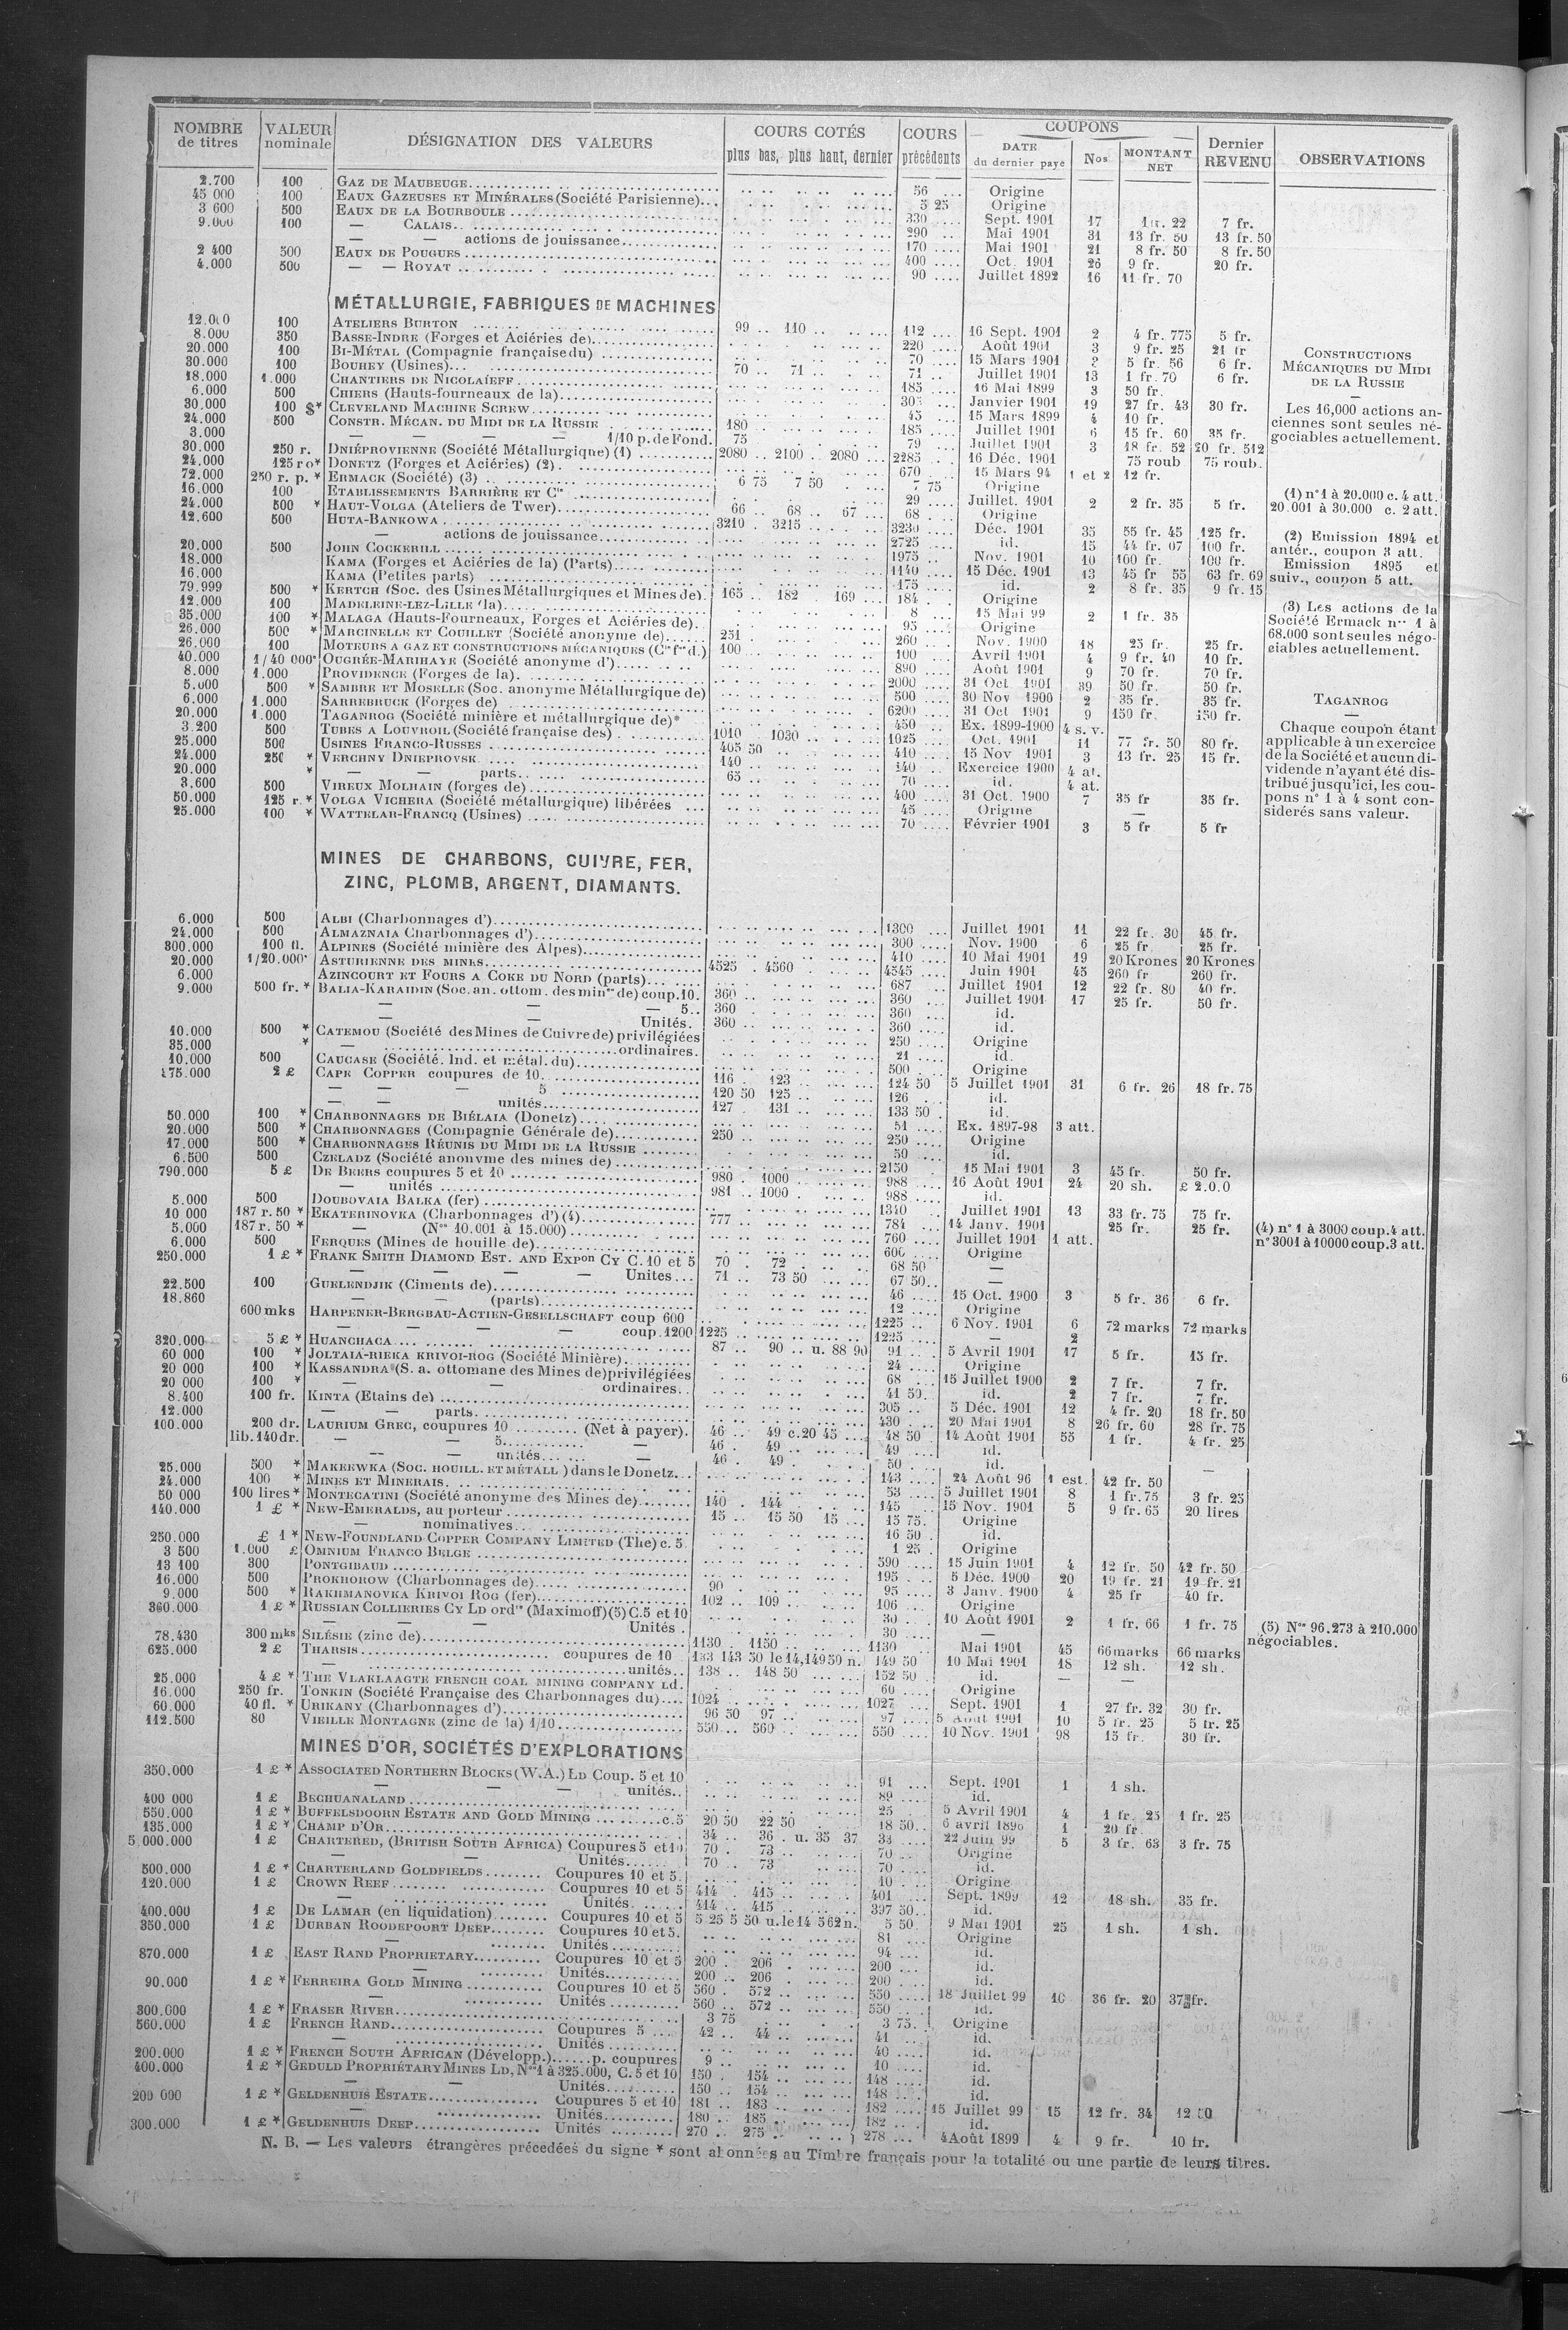 NOMBRE de titres | VALEUR nominale | DÉSIGNATION DES VALEURS | COURS COTÉS plus bas, plus haut, dernier | COURS précédents | COUPONS DATE du dernier payé | Nos | MONTANT NET | Dernier REVENU | OBSERVATIONS
2.700 100 GAZ DE MAUBEUGE 56 Origine
45 000 100 EAUX GAZEUSES ET MINÉRALES (Société Parisienne) 5 25 Origine
3 600 500 EAUX DE LA BOURBOULE 330 Sept. 1901 17 22 7 fr.
9.000 100 — CALAIS 290 Mai 1901 31 13 fr. 50 13 fr. 50
— — actions de jouissance 170 Mai 1901 21 8 fr. 50 8 fr. 50
2 400 500 EAUX DE POUGUES 400 Oct. 1901 26 9 fr. 20 fr.
4.000 500 — — ROYAT 90 Juillet 1892 16 11 fr. 70
MÉTALLURGIE, FABRIQUES DE MACHINES
12.000 100 ATELIERS BURTON 99 110 112 16 Sept. 1901 2 4 fr. 775 5 fr.
8.000 350 BASSE-INDRE (Forges et Aciéries de) 220 Août 1901 3 9 fr. 25 21 fr
20.000 100 BI-MÉTAL (Compagnie française du) 70 15 Mars 1901 5 fr. 56 6 fr.
30.000 100 BOUHEY (Usines) 70 71 71 Juillet 1901 13 1 fr. 70 6 fr.
18.000 1.000 CHANTIERS DE NICOLAÏEFF 185 16 Mai 1899 3 50 fr.
6.000 500 CHIERS (Hauts-fourneaux de la) Janvier 1901 19 27 fr. 43 30 fr.
30.000 100 $* CLEVELAND MACHINE SCREW 45 15 Mars 1899 4 10 fr.
24.000 500 CONSTR. MÉCAN. DU MIDI DE LA RUSSIE 180 185 Juillet 1901 6 15 fr. 60 35 fr.
3.000 — — — 1/10 p. de Fond. 75 79 Juillet 1901 3 18 fr. 52 20 fr. 512
30.000 250 r. DNIÉPROVIENNE (Société Métallurgique) (1) 2080 2100 2080 2285 16 Déc. 1901 75 roub 75 roub.
24.000 125 ro* DONETZ (Forges et Aciéries) (2) 670 15 Mars 94 1 et 2 12 fr.
72.000 250 r. p. * ERMACK (Société) (3) 6 75 7 50 7 75 Origine
16.000 100 ETABLISSEMENTS BARRIÈRE ET Cie 29 Juillet 1901 2 2 fr. 35 5 fr.
24.000 500 * HAUT-VOLGA (Ateliers de Twer) 66 68 67 68 Origine
12.600 500 HUTA-BANKOWA 3210 3215 3230 Déc. 1901 35 55 fr. 45 125 fr.
— actions de jouissance 2725 id. 15 44 fr. 07 100 fr.
20.000 500 JOHN COCKERILL 1975 Nov. 1901 10 100 fr. 100 fr.
18.000 KAMA (Forges et Aciéries de la) (Parts) 1140 15 Déc. 1901 13 45 fr 55 63 fr. 69
16.000 KAMA (Petites parts) 175 id. 2 8 fr. 35 9 fr. 15
79.999 500 * KERTCH (Soc. des Usines Métallurgiques et Mines de) 165 182 169 184 Origine
12.000 100 MADELEINE-LEZ-LILLE (la) 8 15 Mai 99 2 1 fr. 35
35.000 100 * MALAGA (Hauts-Fourneaux, Forges et Aciéries de) 95 Origine
26.000 500 * MARCINELLE ET COUILLET (Société anonyme de) 251 260 Nov. 1900 18 25 fr. 25 fr.
26.000 100 MOTEURS A GAZ ET CONSTRUCTIONS MÉCANIQUES (Cie fse d.) 100 100 Avril 1901 4 9 fr. 40 10 fr.
40.000 1/40 000e OUGRÉE-MARIHAYE (Société anonyme d') 890 Août 1901 9 70 fr. 70 fr.
8.000 1.000 PROVIDENCE (Forges de la) 2000 31 Oct. 1901 39 50 fr. 50 fr.
5.000 500 * SAMBRE ET MOSELLE (Soc. anonyme Métallurgique de) 500 30 Nov 1900 2 35 fr. 35 fr.
6.000 1.000 SARREBRUCK (Forges de) 6200 31 Oct 1901 9 150 fr. 150 fr.
20.000 1.000 TAGANROG (Société minière et métallurgique de)* 450 Ex. 1899-1900 4 s. v.
3.200 500 TUBES A LOUVROIL (Société française des) 1010 1030 1025 Oct. 1901 11 77 fr. 50 80 fr.
25.000 500 USINES FRANCO-RUSSES 405 50 410 15 Nov 1901 3 13 fr. 25 15 fr.
24.000 250 * VERCHNY DNIEPROVSK 140 140 Exercice 1900 4 at.
20.000 * — — parts 65 70 id. 4 at.
3.600 500 VIREUX MOLHAIN (forges de) 400 31 Oct. 1900 7 35 fr 35 fr.
50.000 125 r. * VOLGA VICHERA (Société métallurgique) libérées 45 Origine —
25.000 100 * WATTELAR-FRANCQ (Usines) 70 Février 1901 3 5 fr 5 fr
CONSTRUCTIONS
MÉCANIQUES DU MIDI
DE LA RUSSIE
—
Les 16,000 actions an-
ciennes sont seules né-
gociables actuellement.
(1) n° 1 à 20.000 c. 4 att.
20.001 à 30.000 c. 2 att.
(2) Emission 1894 et
antér., coupon 3 att.
Emission 1895 et
suiv., coupon 5 att.
(3) Les actions de la
Société Ermack nos 1 à
68.000 sont seules négo-
ciables actuellement.
TAGANROG
—
Chaque coupon étant
applicable à un exercice
de la Société et aucun di-
vidende n'ayant été dis-
tribué jusqu'ici, les cou-
pons n° 1 à 4 sont con-
sidérés sans valeur.
MINES DE CHARBONS, CUIVRE, FER,
ZINC, PLOMB, ARGENT, DIAMANTS.
6.000 500 ALBI (Charbonnages d') 1300 Juillet 1901 11 22 fr. 30 45 fr.
24.000 500 ALMAZNAIA Charbonnages d') 300 Nov. 1900 6 25 fr 25 fr.
800.000 100 fl. ALPINES (Société minière des Alpes) 410 10 Mai 1901 19 20 Krones 20 Krones
20.000 1/20.000e ASTURIENNE DES MINES 4525 4560 4545 Juin 1901 45 260 fr 260 fr.
6.000 AZINCOURT ET FOURS A COKE DU NORD (parts) 687 Juillet 1901 12 22 fr. 80 40 fr.
9.000 500 fr. * BALIA-KARAIDIN (Soc. an. ottom. des mines de) coup. 10. 360 360 Juillet 1901 17 25 fr. 50 fr.
— — — 5 360 360 id.
— — Unités. 360 360 id.
10.000 500 * CATEMOU (Société des Mines de Cuivre de) privilégiées 250 Origine
35.000 * — ordinaires. 21 id.
10.000 500 CAUCASE (Société. Ind. et métal. du) 500 Origine
175.000 2 £ CAPE COPPER coupures de 10 116 123 124 50 5 Juillet 1901 31 6 fr. 26 18 fr. 75
— — — 5 120 50 125 126 id.
— — unités 127 131 133 50 id.
50.000 100 * CHARBONNAGES DE BIÉLAIA (Donetz) 51 Ex. 1897-98 3 att.
20.000 500 * CHARBONNAGES (Compagnie Générale de) 250 250 Origine
17.000 500 * CHARBONNAGES RÉUNIS DU MIDI DE LA RUSSIE 50 id.
6.500 500 CZELADZ (Société anonyme des mines de) 2150 15 Mai 1901 3 45 fr. 50 fr.
790.000 5 £ DE BEERS coupures 5 et 10 980 1000 988 16 Août 1901 24 20 sh. £ 2.0.0
— unités 981 1000 988 id.
5.000 500 DOUBOVAIA BALKA (fer) 1340 Juillet 1901 13 33 fr. 75 75 fr.
10 000 187 r. 50 * EKATERINOVKA (Charbonnages d') (4) 777 784 14 Janv. 1901 25 fr. 25 fr.
5.000 187 r. 50 * — (Nos 10.001 à 15.000) 760 Juillet 1901 1 att.
6.000 500 FERQUES (Mines de houille de) 600 Origine
250.000 1 £ * FRANK SMITH DIAMOND EST. AND EXPon CY C. 10 et 5 70 72 68 50 —
— — — — Unites 71 73 50 67 50 —
22.500 100 GUELENDJIK (Ciments de) 46 15 Oct. 1900 3 5 fr. 36 6 fr.
18.860 — (parts) 12 Origine
600 mks HARPENER-BERGBAU-ACTIEN-GESELLSCHAFT coup 600 1225 6 Nov. 1901 6 72 marks 72 marks
— — — — coup. 1200 1225 1225 — 2
320.000 5 £ * HUANCHACA 87 90 u. 88 90 91 5 Avril 1901 17 5 fr. 15 fr.
60 000 100 * JOLTAIA-RIEKA KRIVOI-ROG (Société Minière) 24 Origine
20 000 100 * KASSANDRA (S. a. ottomane des Mines de) privilégiées 68 15 Juillet 1900 2 7 fr. 7 fr.
20 000 100 * — — ordinaires 41 50 id. 2 7 fr. 7 fr.
8.400 100 fr. KINTA (Etains de) 305 5 Déc. 1901 12 4 fr. 20 18 fr. 50
12.000 — — parts 430 20 Mai 1901 8 26 fr. 60 28 fr. 75
100.000 200 dr. LAURIUM GREC, coupures 10 (Net à payer). 46 49 c. 20 45 48 50 14 Août 1901 55 1 fr. 4 fr. 25
lib. 140 dr. — 5 — 46 49 49 id.
— — unités — 46 49 50 id.
25.000 500 * MAKEEWKA (SOC. HOUILL. ET MÉTALL ) dans le Donetz 143 24 Août 96 1 est. 42 fr. 50 —
24.000 100 * MINES ET MINERAIS 53 5 Juillet 1901 8 1 fr. 75 3 fr. 25
50 000 100 lires * MONTECATINI (Société anonyme des Mines de) 140 144 145 15 Nov. 1901 5 9 fr. 65 20 lires
140.000 1 £ * NEW-EMERALDS, au porteur 15 15 50 15 15 75 Origine
— nominatives 16 50 id.
250.000 £ 1 * NEW-FOUNDLAND COPPER COMPANY LIMITED (The) c. 5. 1 25 Origine
3 500 1.000 £ OMNIUM FRANCO BELGE 590 15 Juin 1901 4 12 fr. 50 42 fr. 50
13 100 300 PONTGIBAUD 195 5 Déc. 1900 20 19 fr. 21 19 fr. 21
16.000 500 PROKHOROW (Charbonnages de) 90 95 3 Janv. 1900 4 25 fr 40 fr.
9.000 500 * RAKHMANOVKA KRIVOI ROG (fer) 102 109 106 Origine
360.000 1 £ * RUSSIAN COLLIERIES CY LD ordres (Maximoff) (5) C. 5 et 10 30 10 Août 1901 2 1 fr. 66 1 fr. 75
— — — Unités 30 —
78.430 300 mks SILÉSIE (zinc de) 1130 1150 1130 Mai 1901 45 66 marks 66 marks
625.000 2 £ THARSIS coupures de 10 143 50 le 14, 149 50 n. 149 50 10 Mai 1901 18 12 sh. 12 sh.
— unités 138 148 50 152 50 id. — —
25.000 4 £ * THE VLAKLAAGTE FRENCH COAL MINING COMPANY LD. 60 Origine
16.000 250 fr. TONKIN (Société Française des Charbonnages du) 1024 1027 Sept. 1901 1 27 fr. 32 30 fr.
60.000 40 fl. * URIKANY (Charbonnages d') 96 50 97 97 5 Août 1901 10 5 fr. 25 5 fr. 25
112.500 80 VIEILLE MONTAGNE (zinc de la) 1/10 550 560 550 10 Nov. 1901 98 15 fr. 30 fr.
(4) n° 1 à 3000 coup. 4 att.
n° 3001 à 10000 coup. 3 att.
(5) Nos 96.273 à 210.000
négociables.
MINES D'OR, SOCIÉTÉS D'EXPLORATIONS
350.000 1 £ * ASSOCIATED NORTHERN BLOCKS (W.A.) LD Coup. 5 et 10 91 Sept. 1901 1 1 sh.
— — — unités 89 id.
400 000 1 £ BECHUANALAND 25 5 Avril 1901 4 1 fr. 25 1 fr. 25
550.000 1 £ * BUFFELSDOORN ESTATE AND GOLD MINING c. 5 20 50 22 50 18 50 6 avril 1896 1 20 fr.
135.000 1 £ * CHAMP D'OR 34 36 u. 35 37 33 22 Juin 99 5 3 fr. 63 3 fr. 75
5.000.000 1 £ CHARTERED, (BRITISH SOUTH AFRICA) Coupures 5 et 10 70 73 70 Origine
— — Unités 70 73 70 id.
500.000 1 £ * CHARTERLAND GOLDFIELDS Coupures 10 et 5 10 Origine
120.000 1 £ CROWN REEF Coupures 10 et 5 414 415 401 Sept. 1899 12 18 sh. 35 fr.
— Unités 414 415 397 50 id.
400.000 1 £ DE LAMAR (en liquidation) Coupures 10 et 5 5 25 5 50 u. le 14 5 62 n. 5 50 9 Mai 1901 25 1 sh. 1 sh.
350.000 1 £ DURBAN ROODEPOORT DEEP Coupures 10 et 5. 81 Origine
— Unités 94 id.
870.000 1 £ EAST RAND PROPRIETARY Coupures 10 et 5 200 206 200 id.
— Unités 200 206 200 id.
90.000 1 £ * FERREIRA GOLD MINING Coupures 10 et 5 560 572 550 18 Juillet 99 10 36 fr. 20 fr.
— Unités 560 572 550 id.
300.000 1 £ * FRASER RIVER 3 75 3 75 Origine
560.000 1 £ FRENCH RAND Coupures 5 42 44 41 id.
— Unités 40 id.
200.000 1 £ * FRENCH SOUTH AFRICAN (Développ.) p. coupures 9 10 id.
400.000 1 £ * GEDULD PROPRIÉTARY MINES LD, Nos 1 à 325.000, C. 5 et 10 150 154 148 id.
— — Unités 150 154 148 id.
200 000 1 £ * GELDENHUIS ESTATE Coupures 5 et 10 181 183 182 15 Juillet 99 15 12 fr. 34 12 50
— Unités 180 185 182 id.
300.000 1 £ * GELDENHUIS DEEP Unités 270 275 278 4 Août 1899 4 9 fr. 10 fr.
N. B. — Les valeurs étrangères précédées du signe * sont abonnées au Timbre français pour la totalité ou une partie de leurs titres.